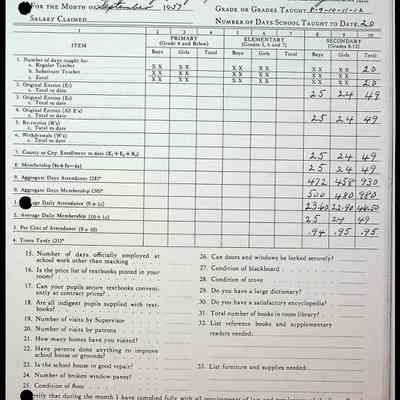 FOR THE MONTH OF September 1957
GRADE OR GRADES TAUGHT 8-9-10-11-12
SALARY CLAIMED
NUMBER OF DAYS SCHOOL TAUGHT TO DATE 20
1 2 3 4 5 6 7 8 9 10
ITEM
PRIMARY (Grade 4 and Below)
ELEMENTARY (Grades 5, 6 and 7)
SECONDARY (Grades 8-12)
Boys Girls Total Boys Girls Total Boys Girls Total
1. Number of days taught by:
a. Regular Teacher X X X X X X X X X X X X 20
b. Substitute Teacher X X X X X X X X X X X X
c. Total X X X X X X X X X X X X 20
2. Original Entries (E1)
c. Total to date 25 24 49
3. Original Entries (E2)
c. Total to date
4. Original Entries (All E's)
c. Total to date 25 24 49
5. Re-entries (R's)
c. Total to date
6. Withdrawals (W's)
c. Total to date
7. County or City Enrollment to date (E1+E2+R2) 25 24 49
8. Membership 25 24 49
9. Aggregate Days Attendance (28)* 472 458 930
0. Aggregate Days Membership (30)* 500 480 980
1. Average Daily Attendance (9÷1c) 23.60 22.90 46.50
2. Average Daily Membership (10÷1c) 25 24 49
3. Per Cent of Attendance (9÷10) .94 .95 .95
4. Times Tardy (21)*
15. Number of days officially employed at
school work other than teaching
16. Is the list price of textbooks posted in your
room?
17. Can your pupils secure textbooks conveni-
ently at contract prices?
18. Are all indigent pupils supplied with text-
books?
19. Number of visits by Supervisor
20. Number of visits by patrons
21. How many homes have you visited?
22. Have patrons done anything to improve
school house or grounds?
23. Is the school house in good repair?
24. Number of broken window panes?
25. Condition of floor
26. Can doors and windows be locked securely?
27. Condition of blackboard
28. Condition of stove
29. Do you have a large dictionary?
30. Do you have a satisfactory encyclopedia?
31. Total number of books in room library?
32. List reference books and supplementary
readers needed:
33. List furniture and supplies needed: